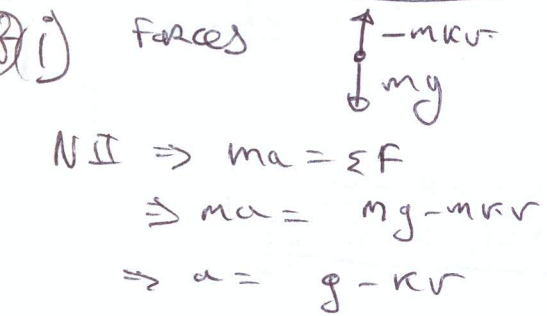 8(i) Forces -mkv
mg
N II ⇒ ma = ΣF
⇒ ma = mg - mkv
⇒ a = g - kv